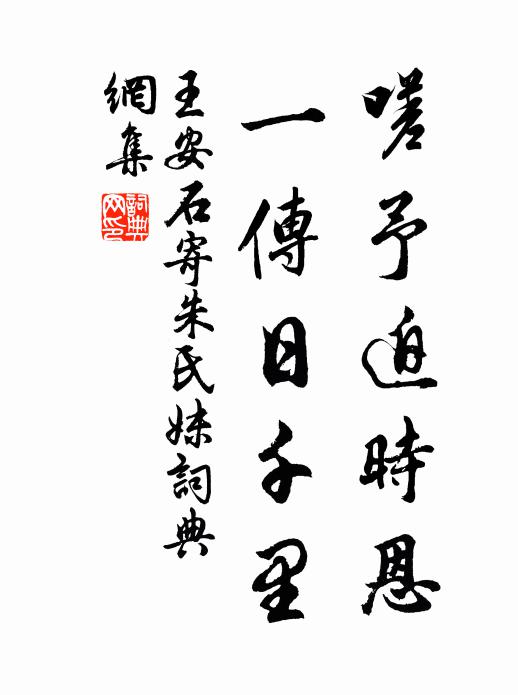 嗟予迫時恩
一傳日千里
王安石寄朱氏妹詞典
網集
詞典網印